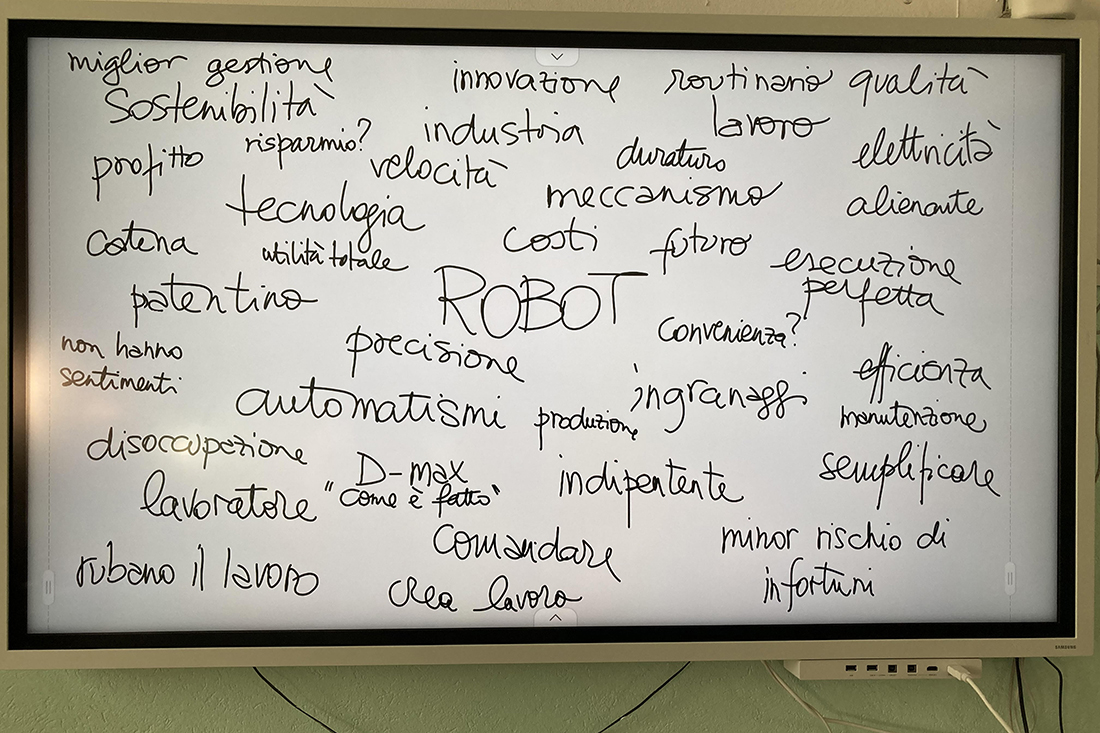 miglior gestione
sostenibilità
innovazione
routinario
qualità
lavoro
risparmio?
industria
profitto
velocità
duraturo
elettricità
tecnologia
meccanismo
alienante
catena
utilità totale
costi
futuro
esecuzione
perfetta
patentino
ROBOT
convenienza?
non hanno
sentimenti
precisione
efficienza
automatismi
produzione
ingranaggi
manutenzione
disoccupazione
D-max
"come è fatto"
indipentente
semplificare
lavoratore
comandare
minor rischio di
infortuni
rubano il lavoro
crea lavoro
SAMSUNG